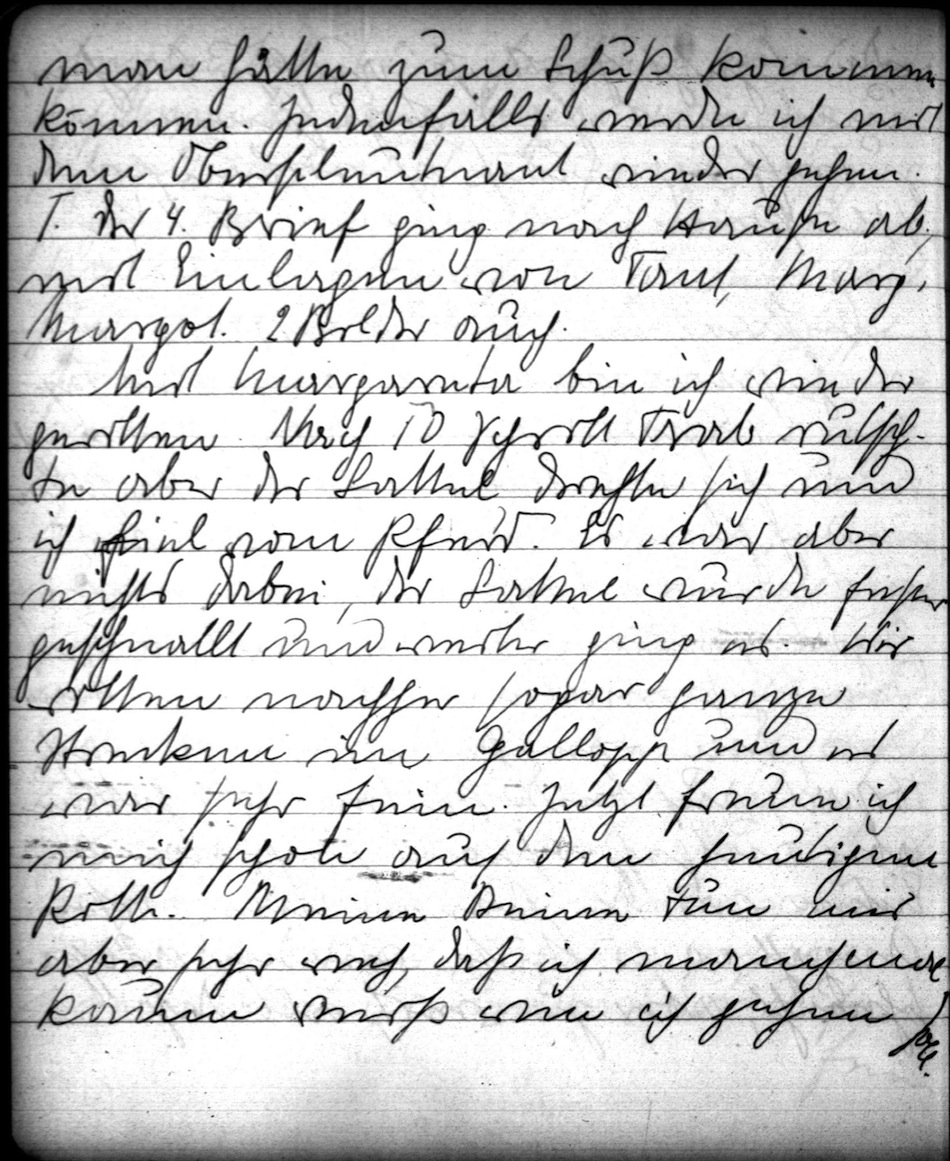 man hätte zum Schuß kommen
können. Jedenfalls werde ich mit
dem Oberstleutnant wieder gehen.
T. der 4. Brief ging nach Hause ab,
mit Einlagen von Tant, Marg,
Margot. 2 Bilder auch.
Mit Margareta bin ich wieder
geritten. Nach 10 Schritt Trab rutsch-
te aber der Sattel drehte sich und
ich fiel vom Pferd. Es war aber
nichts dabei, der Sattel wurde fester
geschnallt und weiter ging es. Wir
ritten nachher sogar ganze
Strecken im Gallopp und es
war sehr fein. Jetzt freue ich
mich schon auf den heutigen
Ritt. Meine Beine tun mir
aber sehr weh, daß ich manchmal
kaum weiß wie ich gehen